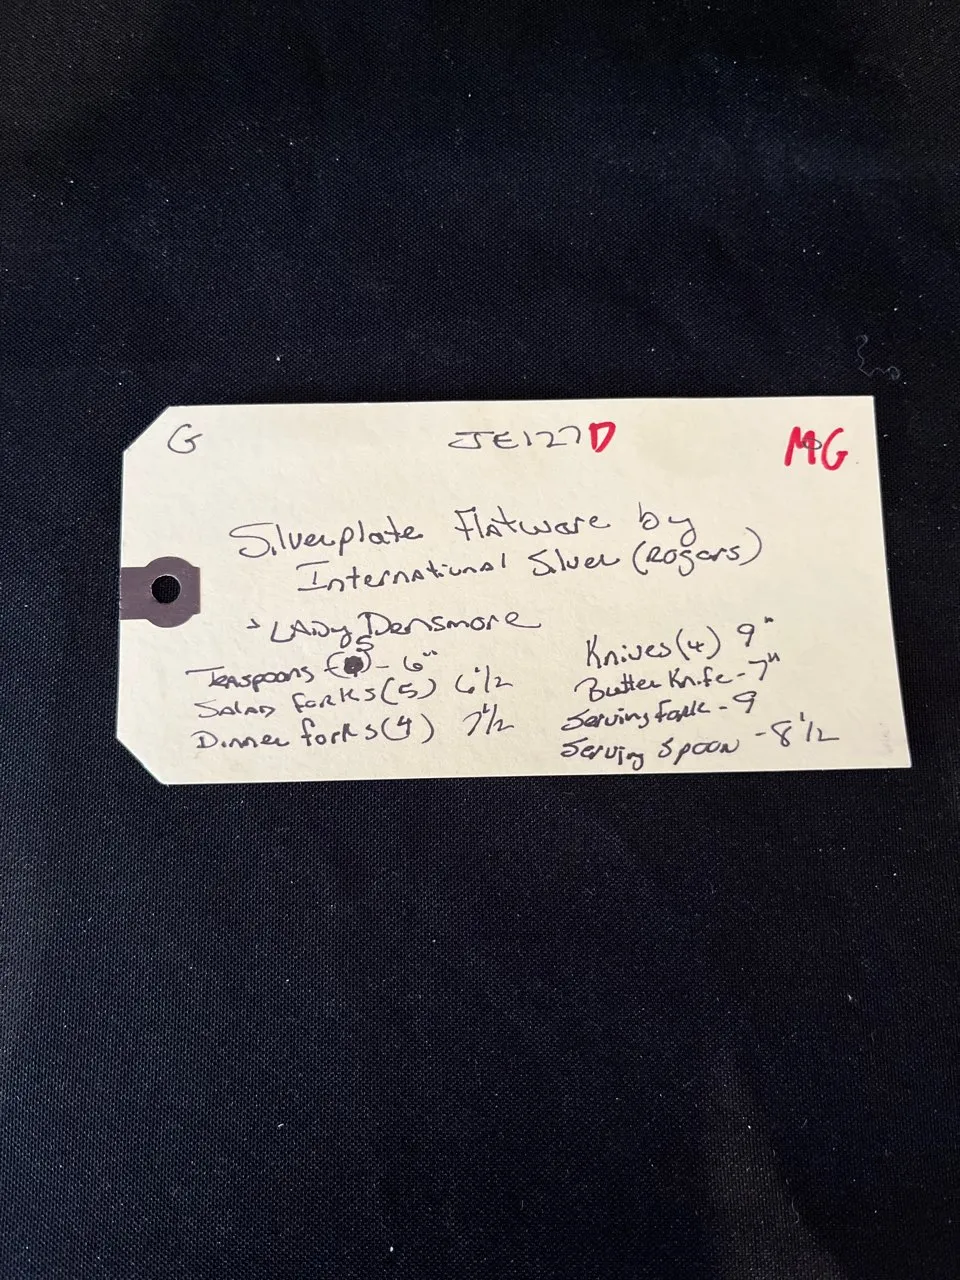 G JE127D MG
Silverplate Flatware by
International Silver (Rogars)
"LADY Densmore
Teaspoons (5) - 6"
SALAD forks (5) 6 1/2
Dinner forks (4) 7 1/2
Knives (4) 9"
Butter Knife - 7"
Serving fork - 9
Serving Spoon - 8 1/2